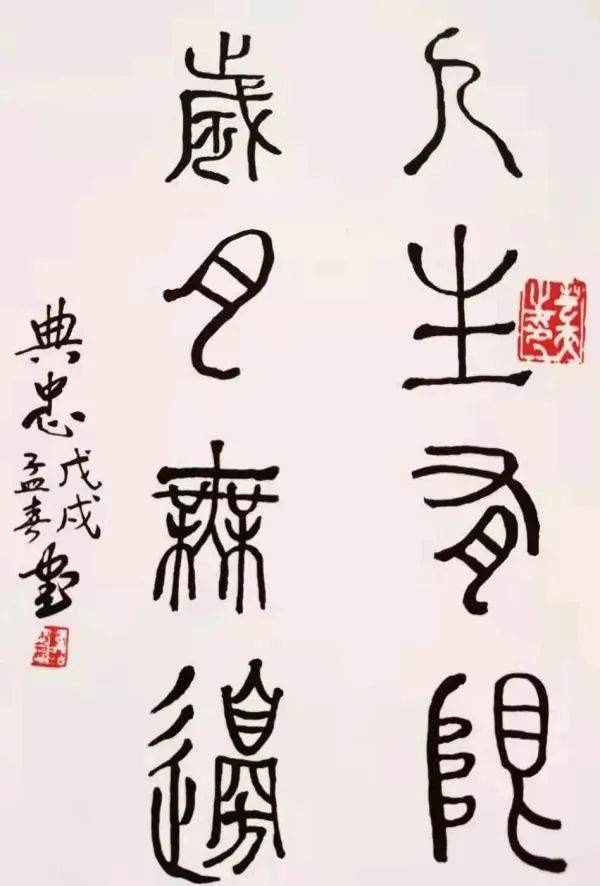 人生有限
歲月無邊
典忠戊戌孟春書